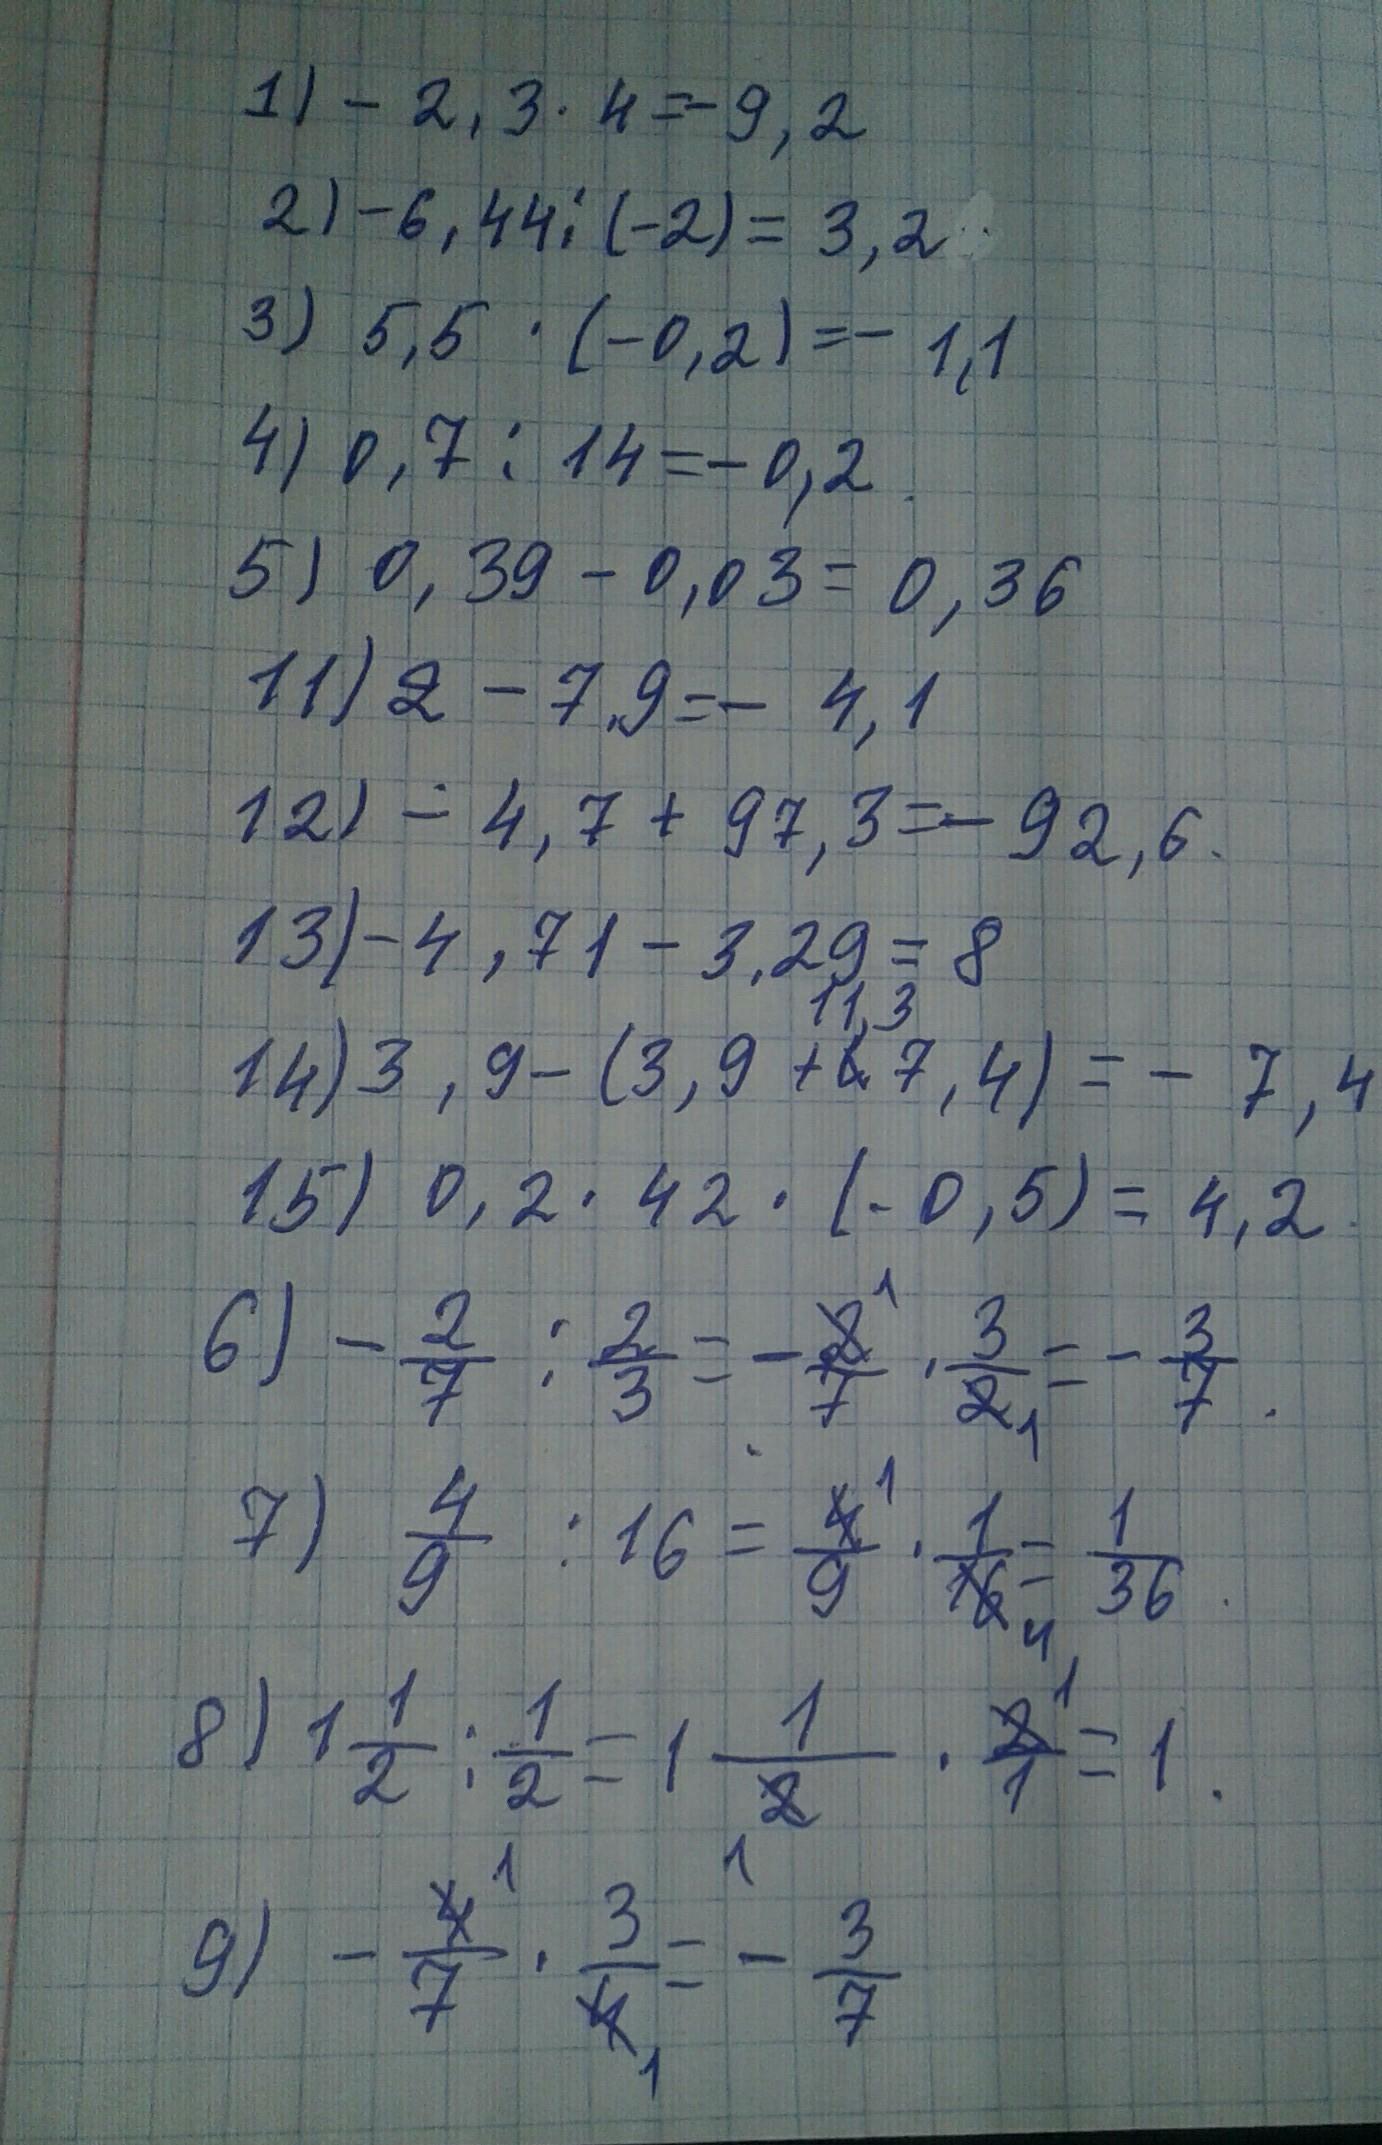 1) - 2,3 · 4 = - 9,2
2) - 6,44 : (-2) = 3,2
3) 5,5 · (-0,2) = - 1,1
4) 0,7 : 14 = - 0,2
5) 0,39 - 0,03 = 0,36
11) 2 - 7,9 = - 4,1
12) - 4,7 + 97,3 = - 92,6.
13) - 4,71 - 3,29 = 8
11,3
14) 3,9 - (3,9 + 7,4) = - 7,4
15) 0,2 · 42 · (-0,5) = 4,2.
6) - 2/7 : 2/3 = - 2/7 · 3/2 = - 3/7.
7) 4/9 : 16 = 4/9 · 1/16 = 1/36.
8) 1 1/2 : 1/2 = 1 1/2 · 2/1 = 1.
9) - 4/7 · 3/4 = - 3/7